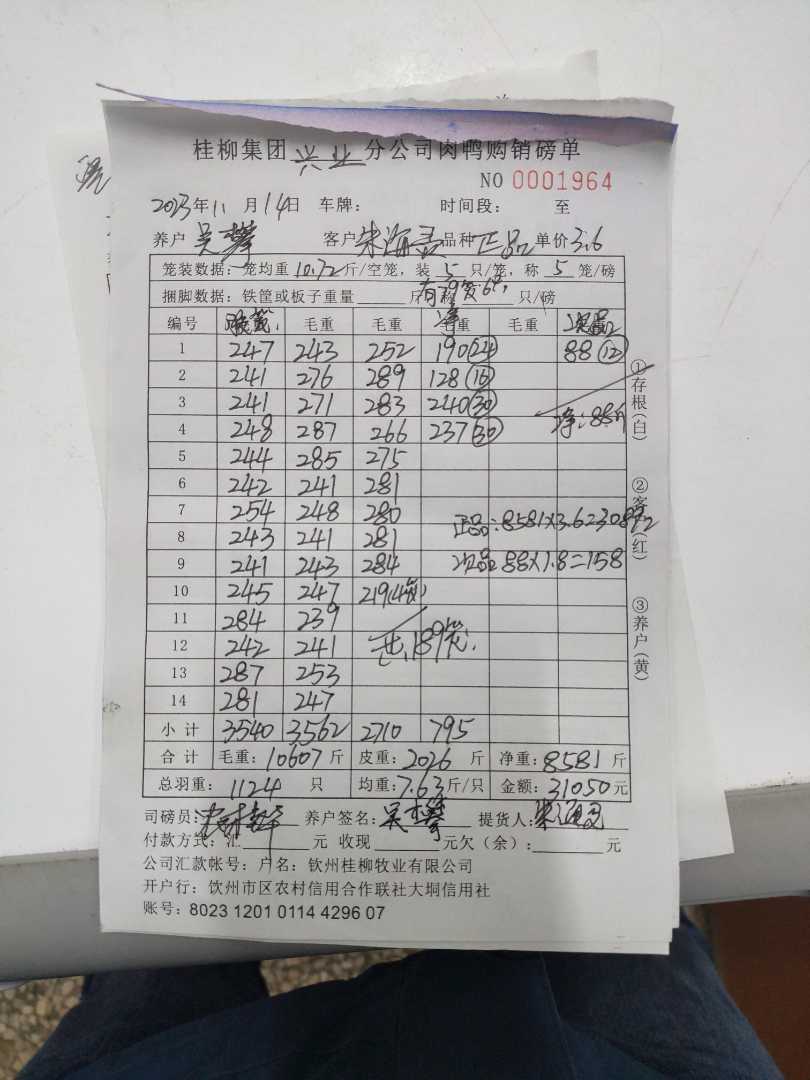 桂柳集团 兴业 分公司肉鸭购销磅单
NO 0001964
2023年11月14日 车牌： 时间段： 至
养户 吴攀 客户 朱海 品种 正品 单价3.6
笼装数据：笼均重10.72斤/空笼，装 5 只/笼，称 5 笼/磅
捆脚数据：铁筐或板子重量 斤 称 只/磅
编号 毛重 毛重 毛重 毛重 次品
1 247 243 252 190(24) 88(12)
2 241 276 289 128(16)
3 241 271 283 240(30)
4 248 287 266 237(30) 净：88斤
5 244 285 275
6 242 241 281
7 254 248 280 正品：8581×3.6=30892
8 243 241 281
9 241 243 284 次品 88×1.8=158
10 245 247 219(4笼)
11 284 239
12 242 241 189笼
13 287 253
14 281 247
小计 3540 3562 2710 795
合计 毛重：10607斤 皮重：2026 斤 净重：8581斤
总羽重：1124 只 均重：7.63斤/只 金额：31050元
司磅员： 养户签名：吴攀 提货人：朱海
付款方式：汇 元 收现 元欠（余）： 元
公司汇款帐号：户名：钦州桂柳牧业有限公司
开户行：钦州市区农村信用合作联社大垌信用社
账号：8023 1201 0114 4296 07
①存根（白）
②客（红）
③养户（黄）